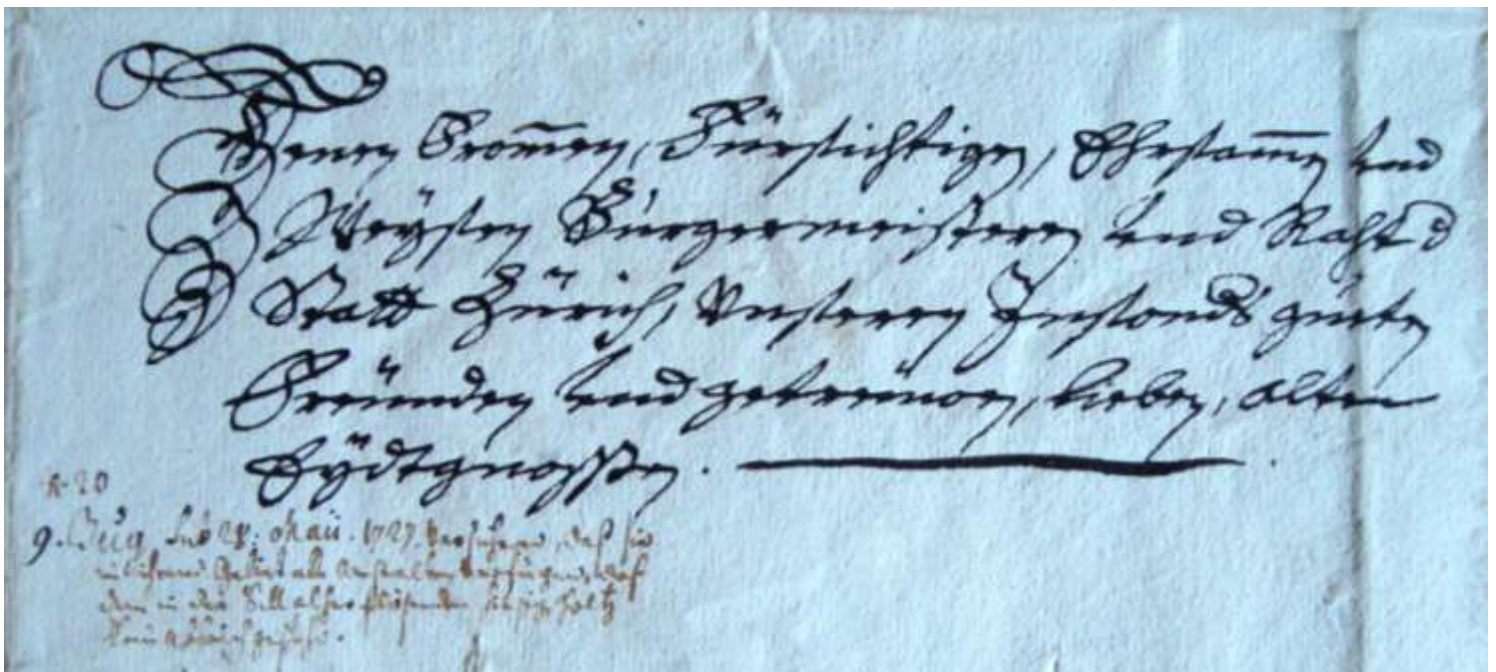 Denen Frommen, Fürsichtigen, Ehrsamen und
Weÿsen Bürgermeisteren und Raht d
Statt Zürich, Unseren Insonds güten
Freünden und getreüwen, lieben, alten
Eÿdtgnossen.
N 20
9. Zug sub 28: Maii. 1727. daß sie
in ihrem Gebiet alle Anstalten daß
dem in der Sill alher flösenden holtz
kein gescheche.